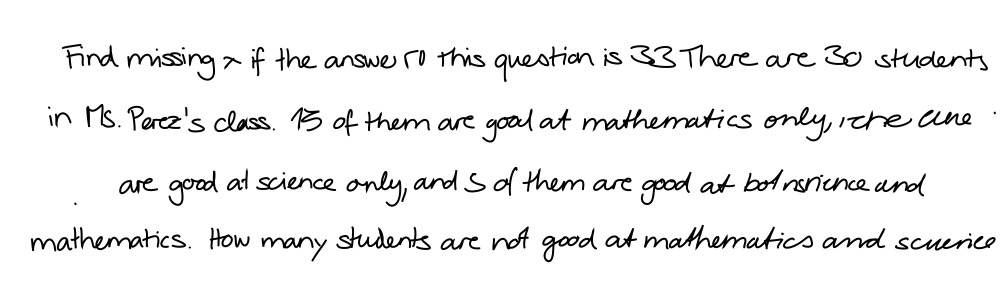 Find missing x if the answer to this question is 33 There are 30 students
in Ms. Perez's class. 15 of them are good at mathematics only,
are good at science only, and 5 of them are good at both science and
mathematics. How many students are not good at mathematics and science